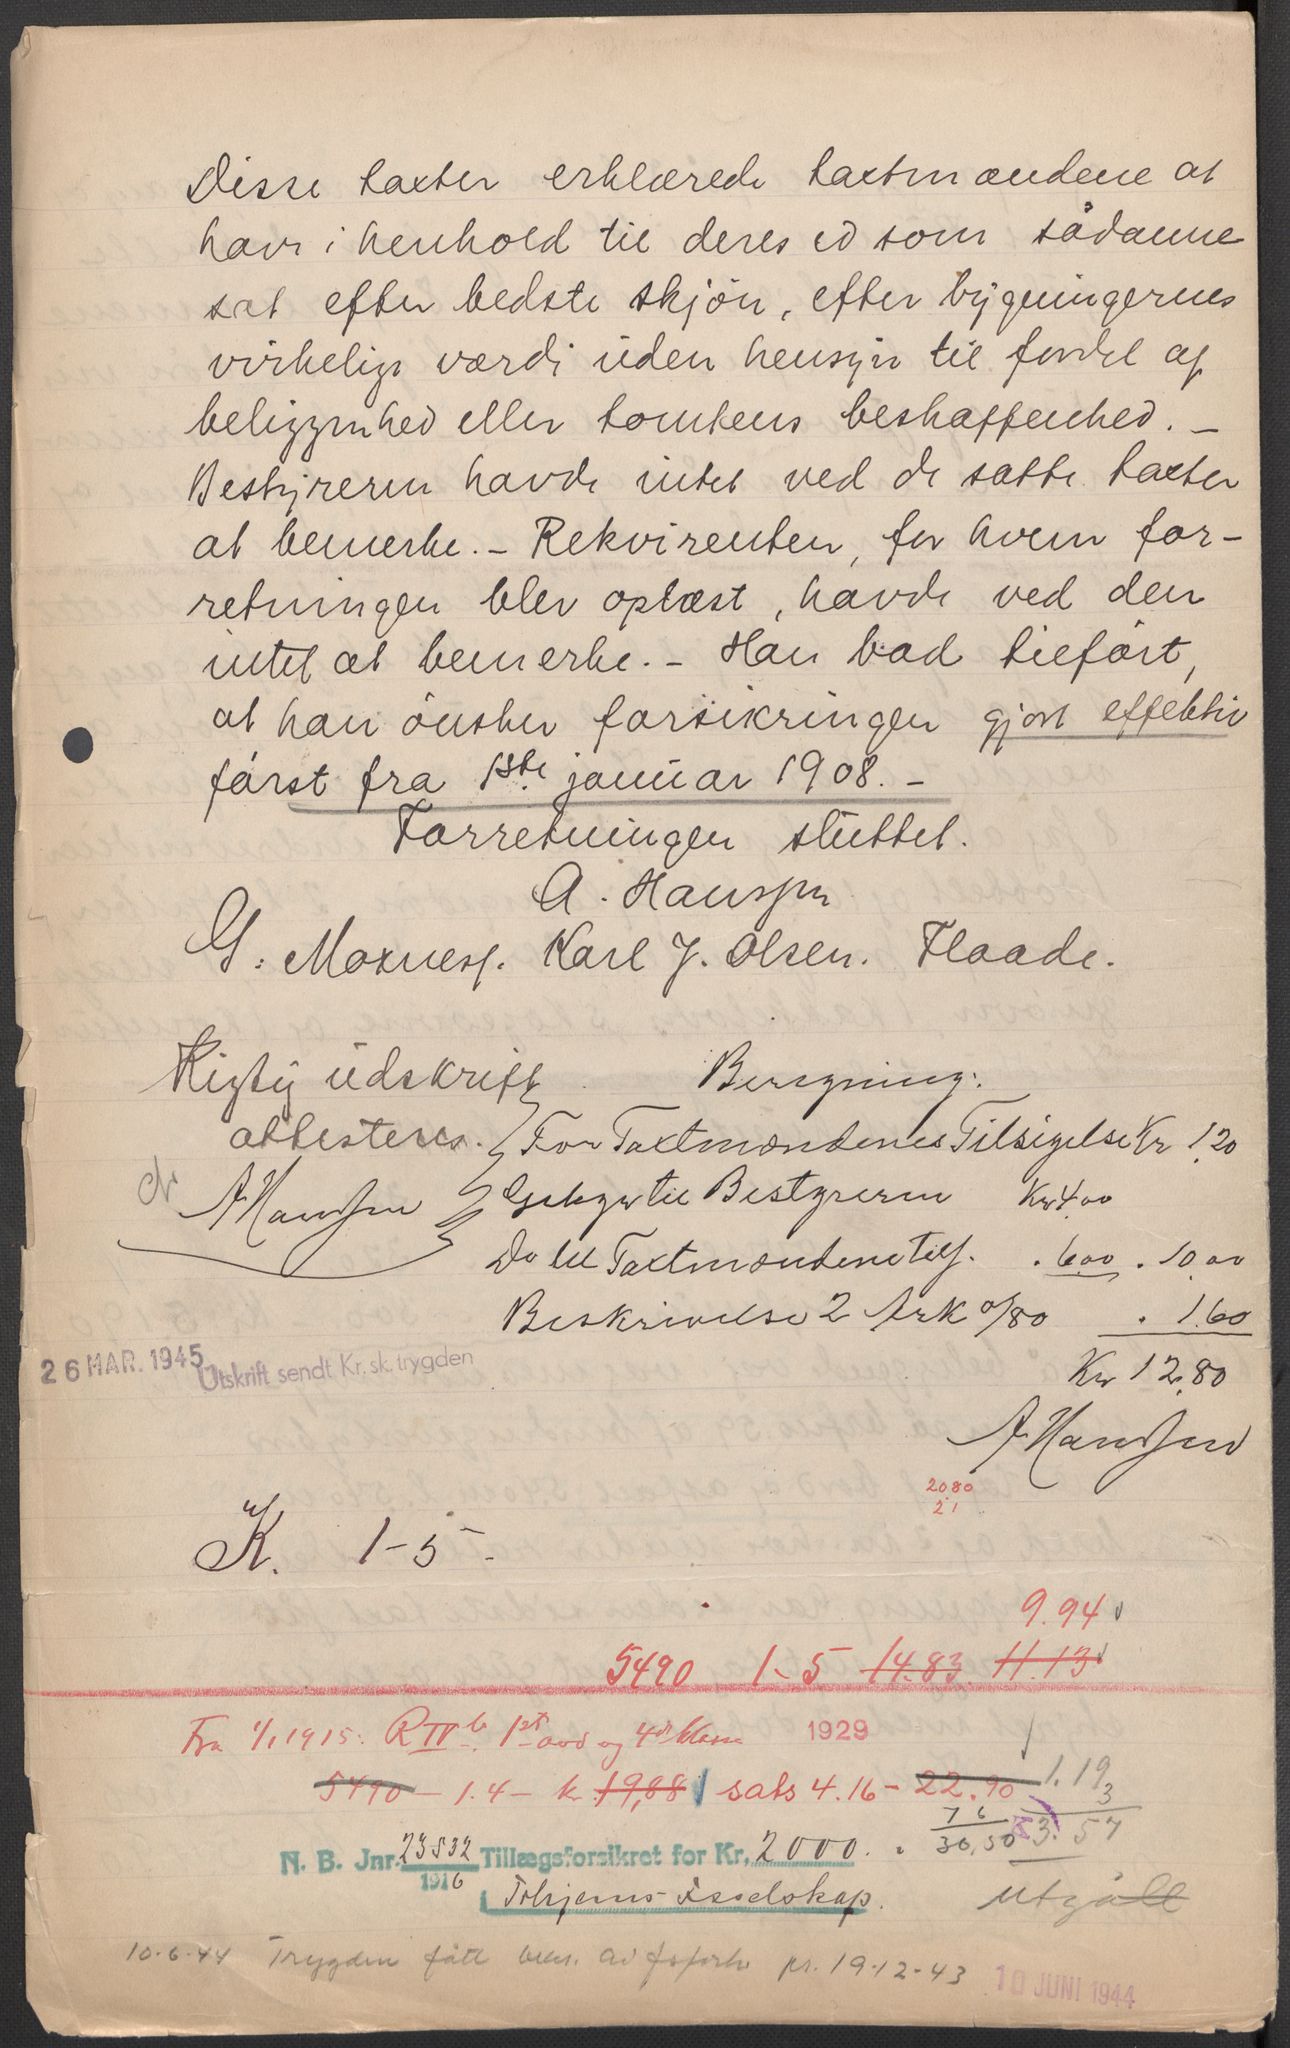 Disse taxter erklærede taxtmændene at
have i henhold til deres ed som sådanne
sat efter bedste skjön, efter bygningernes
virkelige værdi uden hensyn til fordel af
beliggenhed eller tomtens beskaffenhed. –
Bestyreren havde intet ved de satte taxter
at bemerke. – Rekvirenten, for hvem for-
retningen blev oplæst, havde ved den
intet at bemerke. – Han bad tilfört,
at han önsker forsikringen gjort effektiv
först fra 1ste januar 1908. –
Forretningen sluttet.
A. Hansen
G. Moxness. Karl J. Olsen. Flaade.
Rigtig udskrift
attesteres.
AHansen
Beregning:
For Taxtmændenes Tilsigelse Kr 1,20
Gebyr til Bestyreren Kr 4,00
Do til Taxtmændene tils. . 6,00 . 10,00
Beskrivelse 2 Ark a/80 . 1.60
Kr 12,80
AHansen
26 MAR. 1945 Utskrift sendt Kr.sk.trygden
2080
21
K. 1-5-
9.94
5490 1-5 14.83 11.13
Fra 1/1 1915: R IV b. 1st avd og 4de klasse 1929
5490 – 1.4 – kr 19,88 sats 4.16 – 22.90 1.19
76 3
30,50 3.57
N. B. Jnr. 23532 Tillægsforsikret for Kr. 2000.
1916
i Trhjems Esselskap.
utgått
10-6-44 Trygden fått pr. 19-12-43
10 JUNI 1944